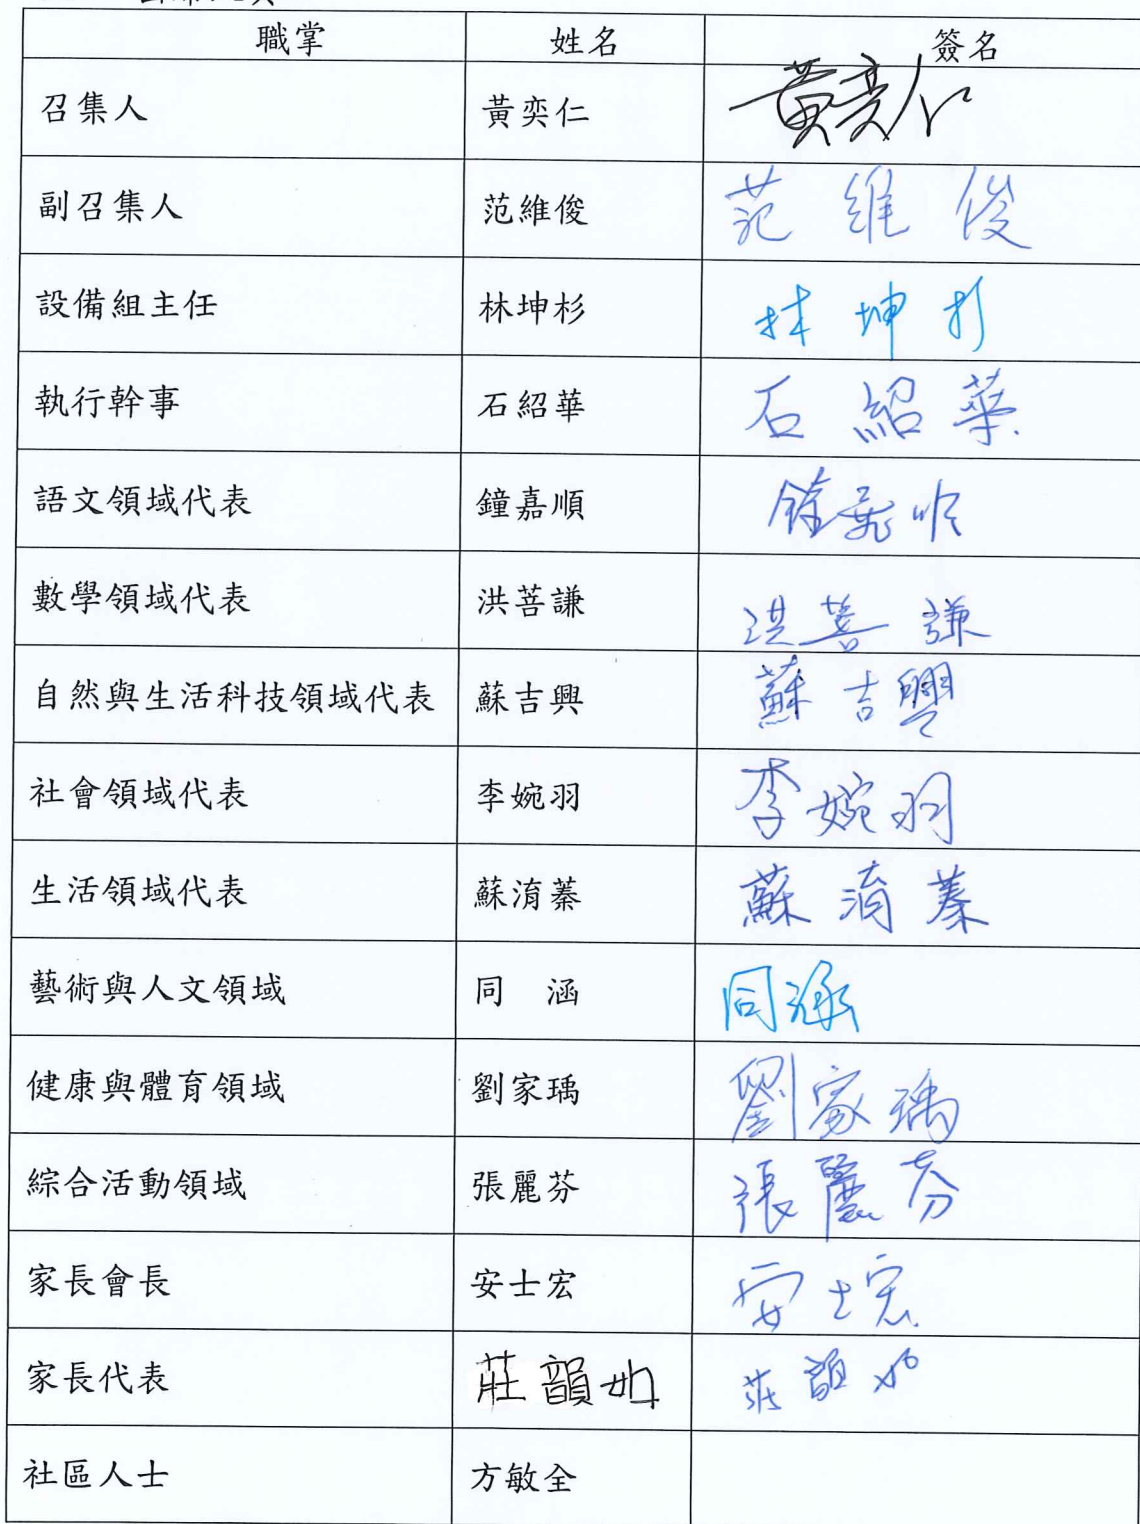 職掌 姓名 簽名
召集人 黃奕仁 黃奕仁
副召集人 范維俊 范維俊
設備組主任 林坤杉 林坤杉
執行幹事 石紹華 石紹華
語文領域代表 鐘嘉順
數學領域代表 洪菩謙 洪菩謙
自然與生活科技領域代表 蘇吉興 蘇吉興
社會領域代表 李婉羽 李婉羽
生活領域代表 蘇淯蓁 蘇淯蓁
藝術與人文領域 同 涵 同涵
健康與體育領域 劉家瑀 劉家瑀
綜合活動領域 張麗芬 張麗芬
家長會長 安士宏 安士宏
家長代表 莊韻如 莊韻如
社區人士 方敏全